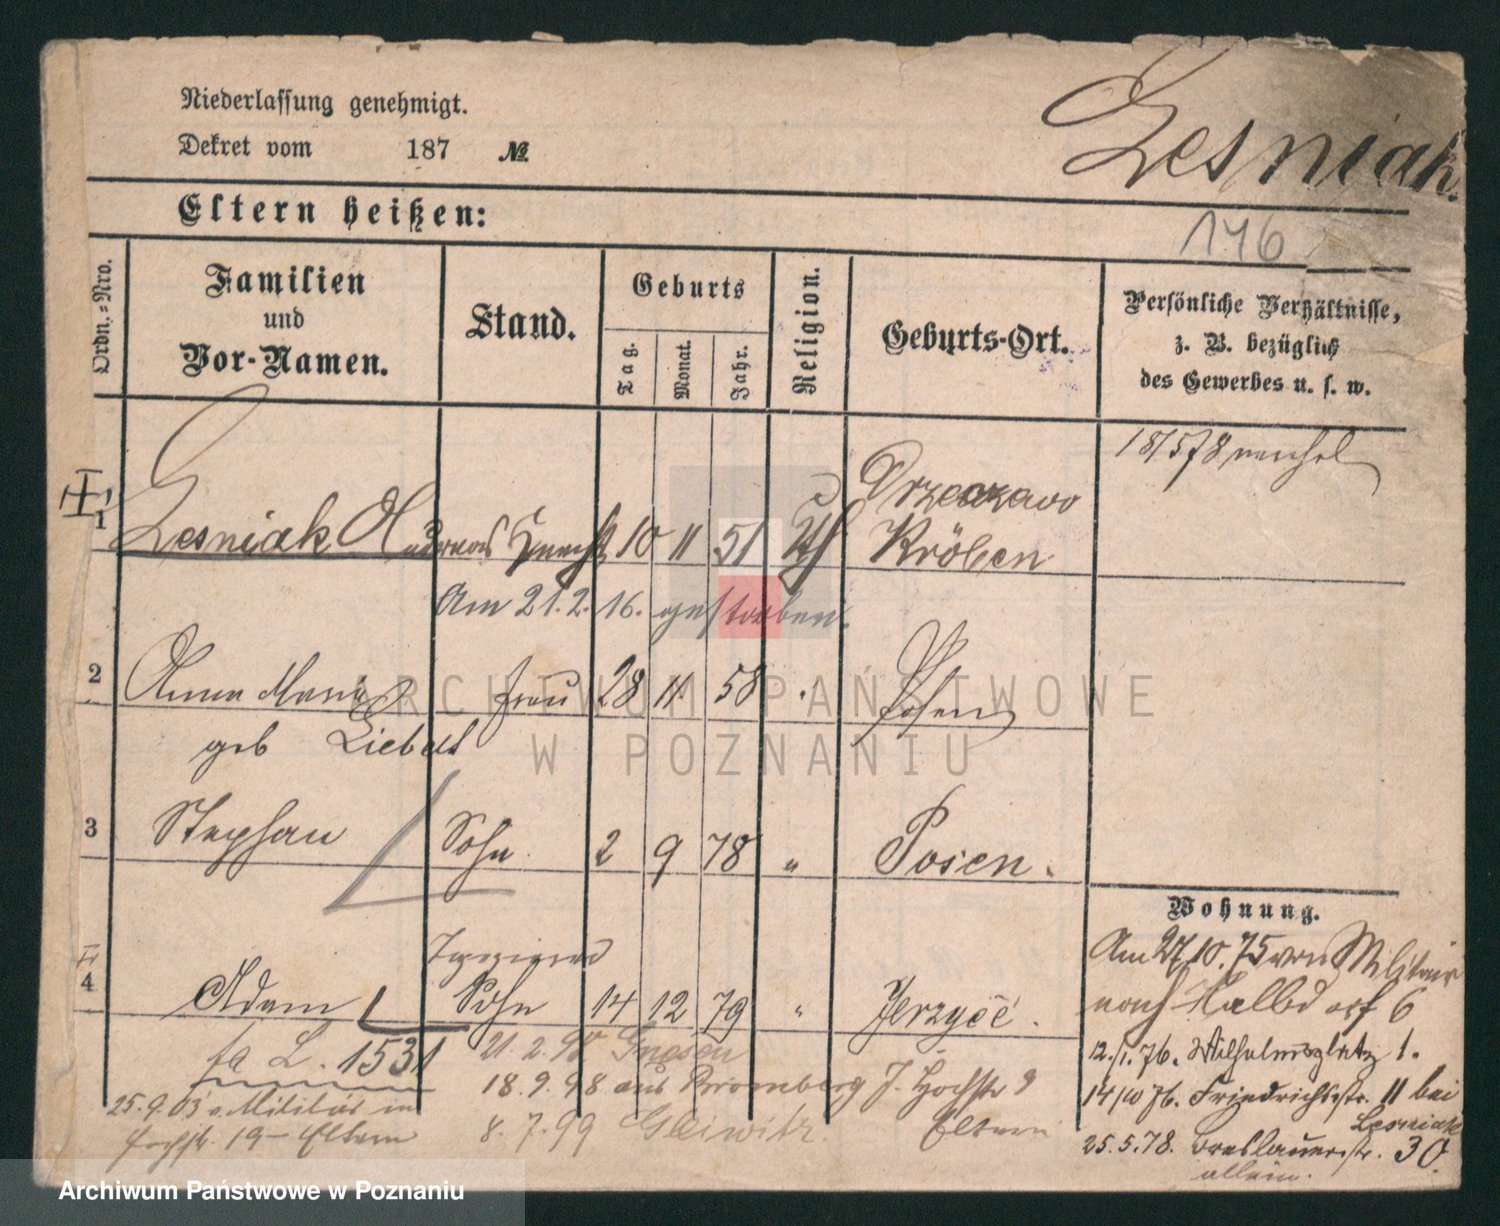 Niederlassung genehmigt.
Dekret vom 187 №
Lesniak.
Eltern heißen:
146
Ordn.=Nro.
Familien
und
Vor-Namen.
Stand.
Geburts
Tag.
Monat.
Jahr.
Religion.
Geburts-Ort.
Persönliche Verhältnisse,
z. B. bezüglich
des Gewerbes u. s. w.
1 Lesniak Andreas Knecht 10 11 51 Kröben
Am 21.2.16. gestorben.
2 Anna Maria Frau 28 11 58 Posen
geb Liebelt
3 Stephan Sohn. 2 9 78 " Posen.
4 Adam Sohn 14 12 79 " Jerzyce.
L. 1531
21.2.98 Gnesen
18.9.98 aus Bromberg J. Hochstr 9
Eltern
8.7.99 Gleiwitz.
25.9.03 v. Militär in
19 - Eltern
Wohnung.
Am 27.10.75 von Militair
nach Halbdorf 6
12./1.76. Wilhelmsplatz 1.
14/10 76. Friedrichsstr. 11 bei
Lesniak
25.5.78. Breslauerstr. 30.
allein.
ARCHIWUM PAŃSTWOWE
W POZNANIU
Archiwum Państwowe w Poznaniu